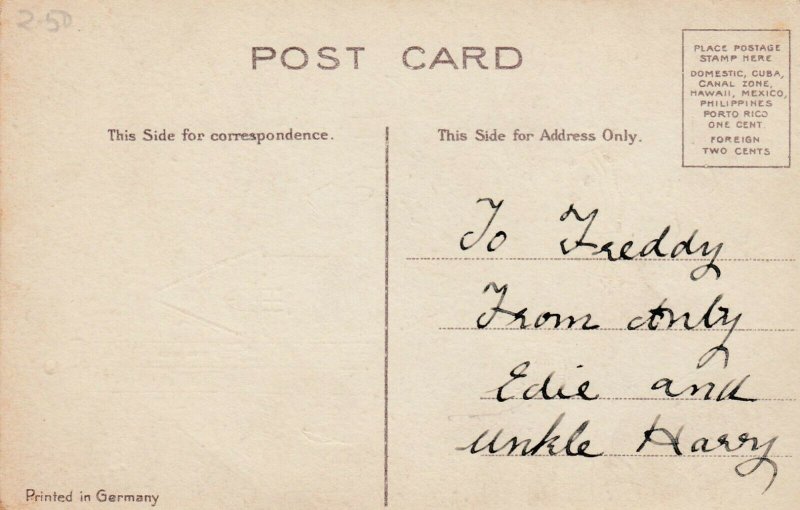 2-50
POST CARD
PLACE POSTAGE
STAMP HERE
DOMESTIC, CUBA,
CANAL ZONE,
HAWAII, MEXICO,
PHILIPPINES
PORTO RICO
ONE CENT
FOREIGN
TWO CENTS
This Side for correspondence.
This Side for Address Only.
To Freddy
From
Edie and
Unkle Harry
Printed in Germany